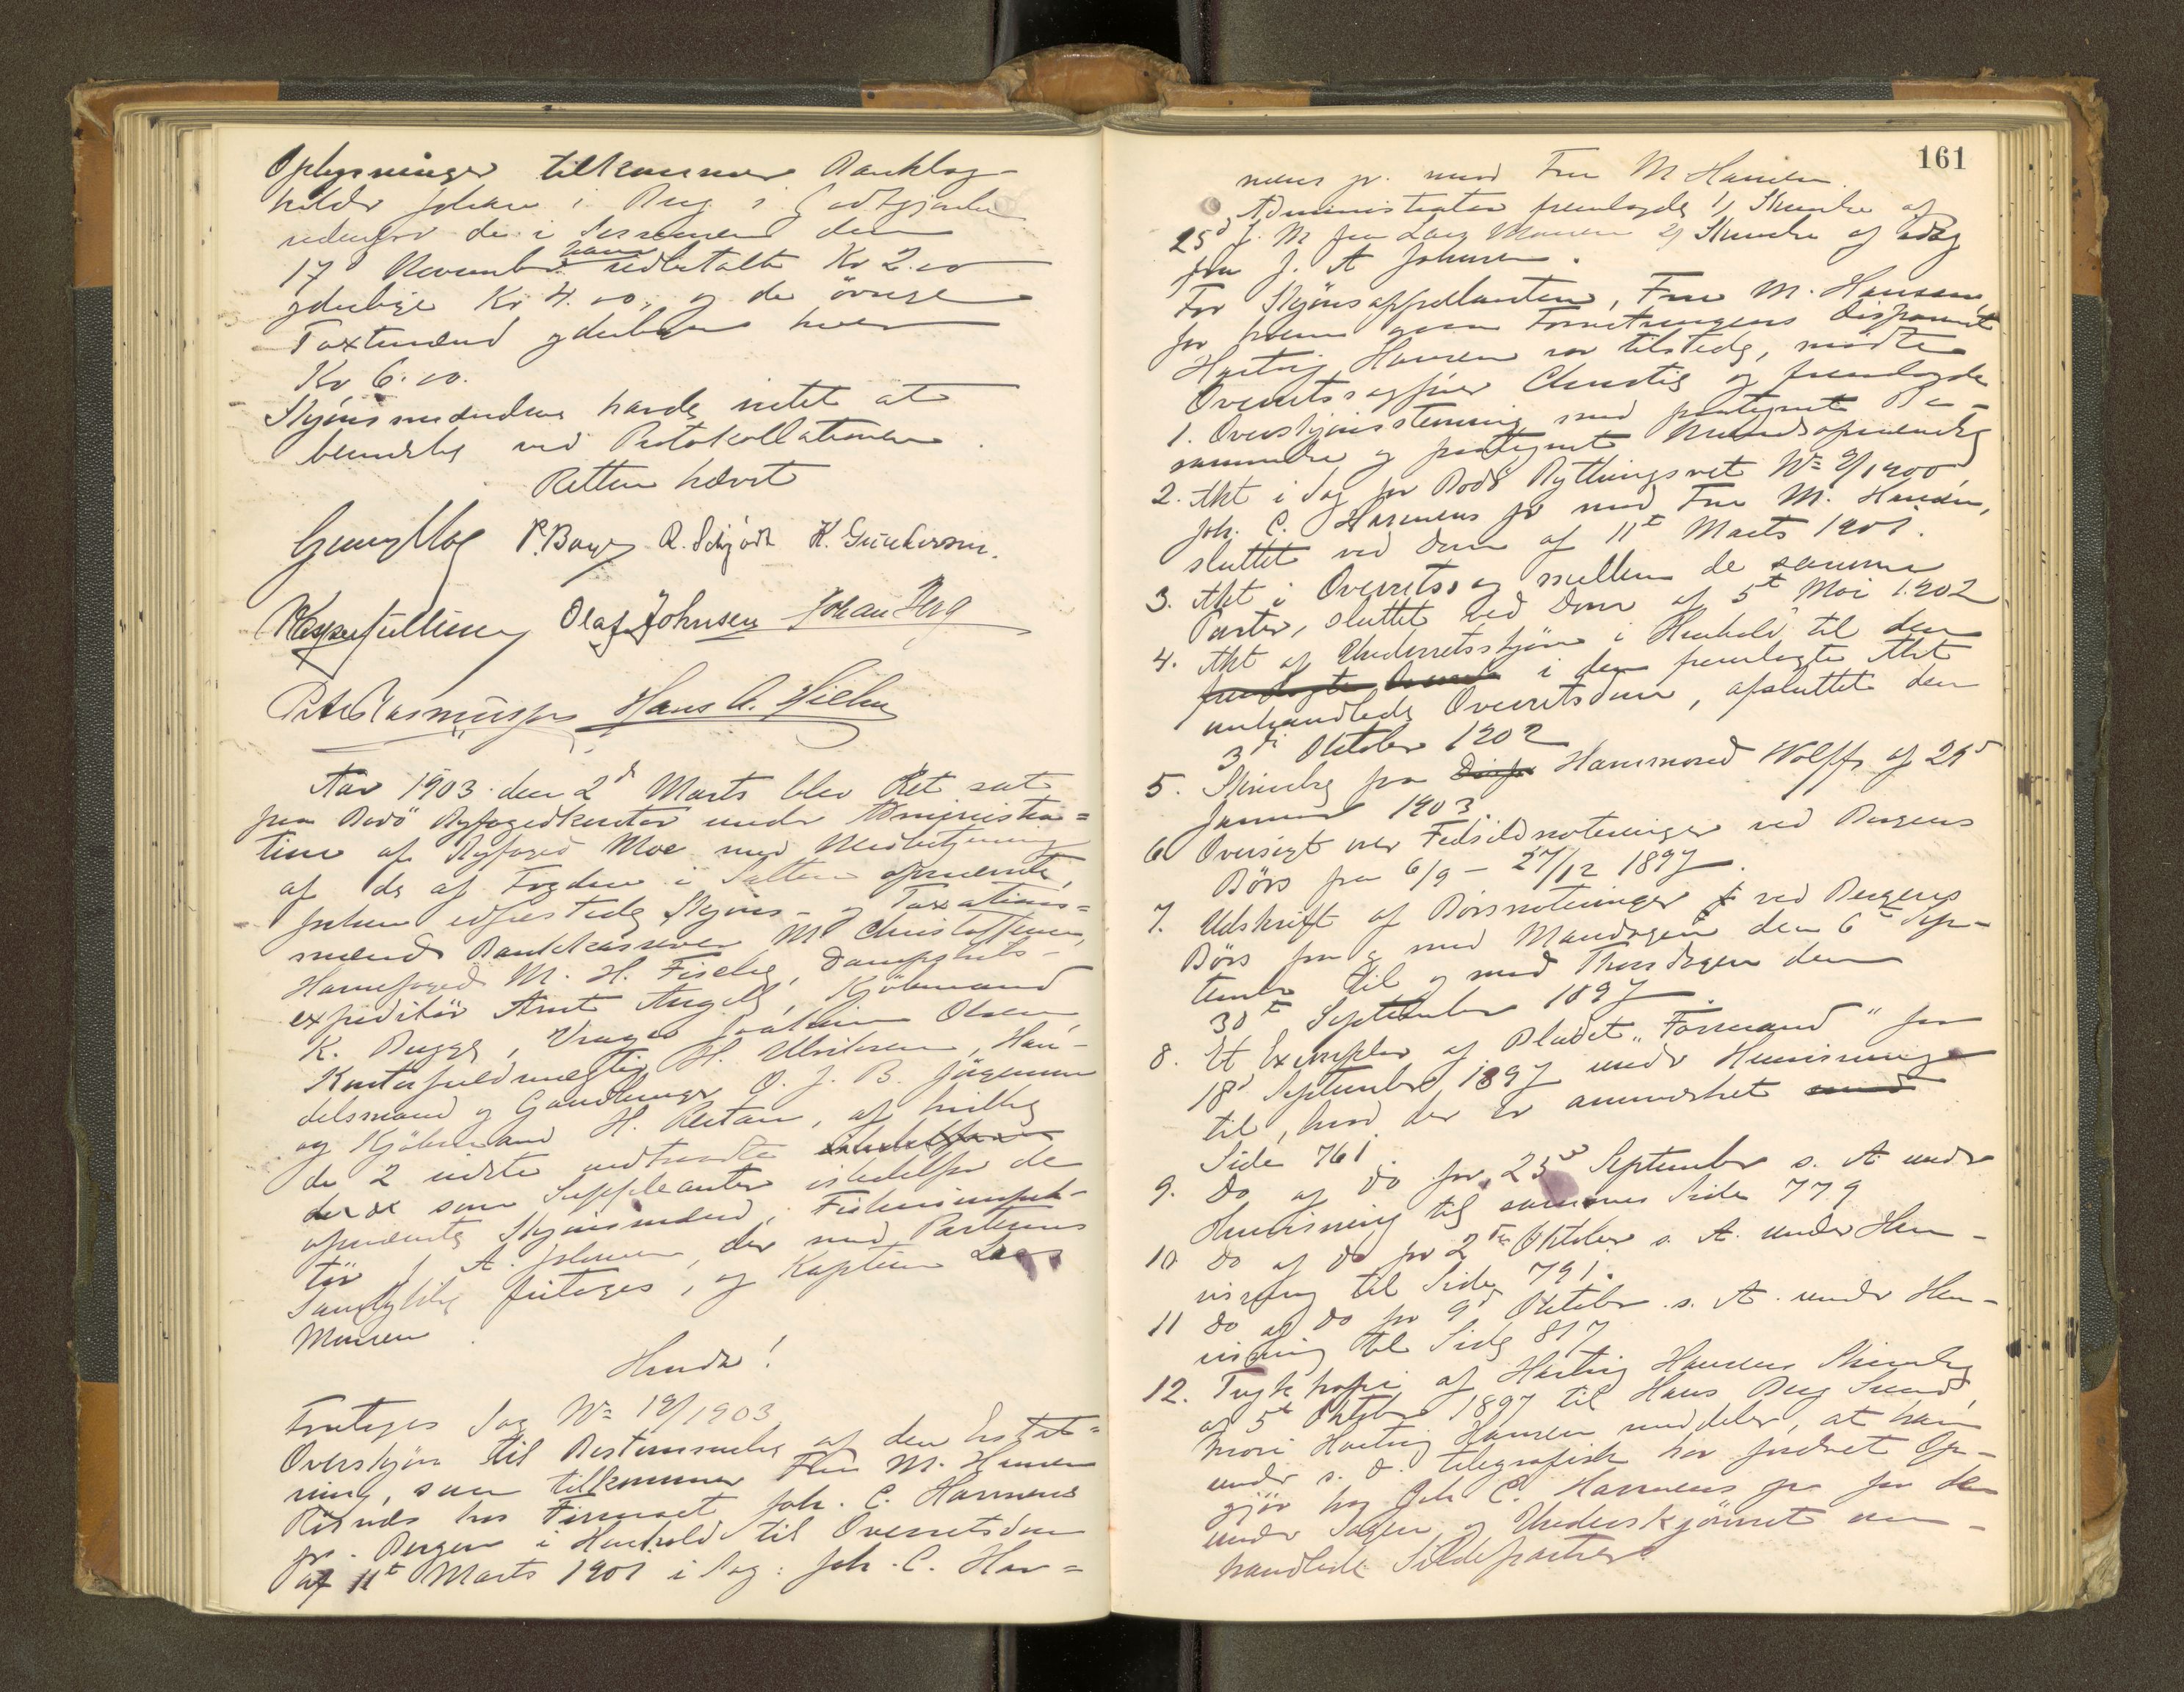 Oplysninger tilkommer Bankbog-
holder Johan i Berg i Godtgjørelse
udenfor de i Sessionen den
17 November ham udbetalte Kr 2.00
yderlige Kr 4.00, og de øvrige
Taxtmænd yderligere hver
Kr 6.00.
Skjønsmændene havde intet at
bemærke ved Protokollationen.
Retten hævet
P. Bay R. Schjøth K. Gundersen.
Olaf Johnsen Johan Berg
Peter Rasmussen Hans A.
Aar 1903 den 2d Marts blev Ret sat
paa Bodø Byfogedkontor under Administra=
tion af Byfoged Moe med Medbetjening
af de af Fogden i Salten opnævnte,
forhen edfæstede Skjøns- og Taxations=
mænd Bankkasserer M Christoffersen,
Havnefoged M. H. Fische, Dampskibs-
expeditør Arnt Angell, Kjøbmand
K. Bugge, Vrager Joakim Olsen,
Kontorfuldmægtig H. Ulriksen, Han-
delsmand og Gaardbruger O. J. B. Jürgensen
og Kjøbmand H. Reitan, af hvilke
de 2 sidste indtraadte
som Suppleanter istedetfor de
opnævnte Skjønsmænd, Fiskeriinspek-
tør J. A. Johnsen, der med Parternes
Samtykke fritoges, og Kaptein Lars
Monsen.
Hvorda!
Foretoges Sag No 19/1903
Overskjøn til Bestemmelse af den Erstat=
ning, som tilkommer Fru M. Hansen
Risnæs hos Firmaet Joh. C. Harmens
jr. Bergen i Henhold til Overretsdom
af 11t Marts 1901 i Sag: Joh. C. Har=
161
mens jr. mod Fru M Hansen.
Administrator fremlagde 1) Skrivelse af
25d f. M fra Lars Monsen 2) Skrivelse af idag
fra J. A Johnsen.
For Skjønsappellanten, Fru M. Hansen,
for hvem ogsaa Forretningens Disponent
Hartvig Hansen var tilstede, mødte
Overretssagfører Christie og fremlagde
1. Overskjønsstevning med paategnet Be-
rammelse og paategnet Mændsopnævnelse
2. Akt i Sag for Bodø Bythingsret No 9/1900,
Joh. C. Harmens jr mod Fru M. Hansen,
sluttet ved Dom af 11t Marts 1901.
3. Akt i Overretssag mellem de samme
Parter, sluttet ved Dom af 5t Mai 1902
4. Akt af Underretsskjøn i Henhold til den
i den fremlagte Akt
omhandlede Overretsdom, afsluttet den
3di Oktober 1902
5. Skrivelse fra Hammond Wolffs af 29d
Januar 1903.
6 Oversigt over Fedsildnoteringer ved Bergens
Børs fra 6/9 - 27/12 1897.
7. Udskrift af Børsnoteringer ved Bergens
Børs fra og med Mandagen den 6te Sep-
tember til og med Thorsdagen den
30t September 1897.
8. Et Exemplar af Bladet "Formand" for
18d September 1897 under Henvisning
til, hvad der er anmærket
Side 761.
9. Do af Do for 25de September s. A under
Henvisning til sammes Side 779
10 Do af Do for 2den Oktober s. A. under Hen-
visning til Side 791.
11 Do af Do for 9d Oktober s. A. under Hen-
visning til Side 817
12. Trykkopi af Hartvig Hansens Skrivelse
af 5t Oktober 1897 til Hans Berg Sund,
hvori Hartvig Hansen meddeler, at han
under s. D. telegrafisk har fordret Op-
gjør hos Joh C. Harmens jr for de
under Sagen og Underskjønnet om-
handlede Sildepartier